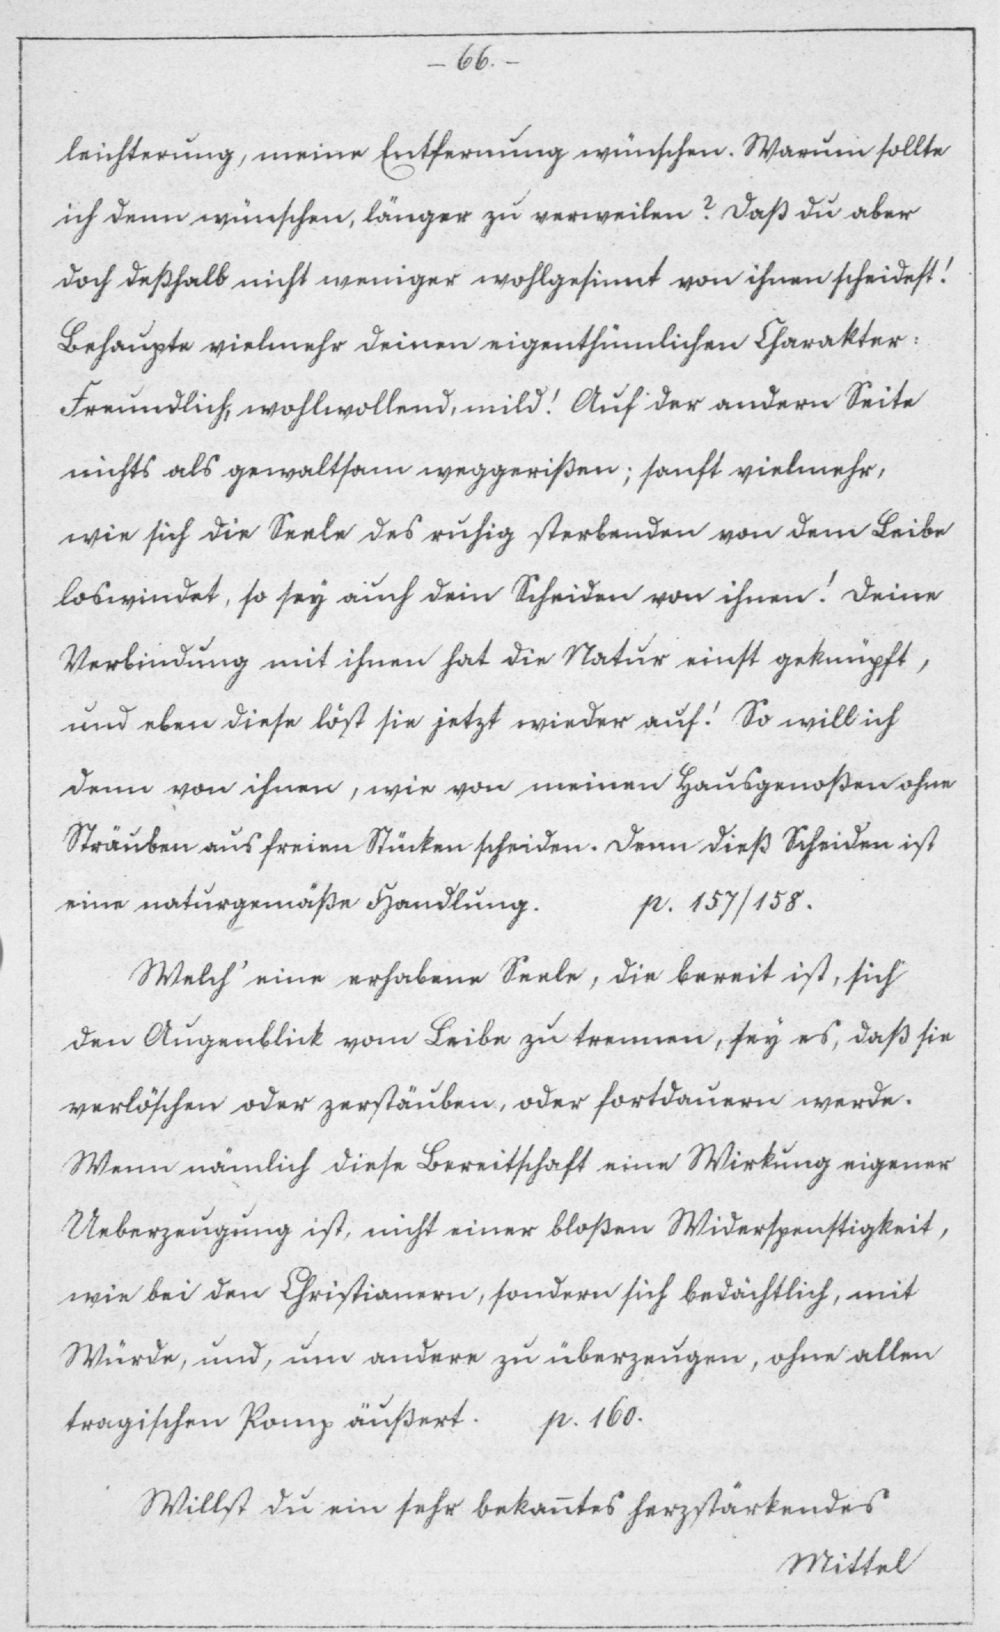 – 66. –
leichterung, meine Entfernung wünschen. Warum sollte
ich denn wünschen, länger zu verweilen? Daß du aber
doch deßhalb nicht weniger wohlgesinnt von ihnen scheidest!
Behaupte vielmehr deinen eigenthümlichen Charakter:
Freundlich, wohlwollend, mild! Auf der andern Seite
nichts als gewaltsam weggerißen; sanft vielmehr,
wie sich die Seele des ruhig sterbenden von dem Leibe
loswindet, so sey auch dein Scheiden von ihnen! Deine
Verbindung mit ihnen hat die Natur einst geknüpft,
und eben diese löst sie jetzt wieder auf! So will ich
denn von ihnen, wie von meinen Hausgenoßen ohne
Sträuben aus freien Stücken scheiden. Denn dieß Scheiden ist
eine naturgemäße Handlung. p. 157/158.
Welch' eine erhabene Seele, die bereit ist, sich
den Augenblick vom Leibe zu trennen, sey es, daß sie
verlöschen oder zerstäuben, oder fortdauern werde.
Wenn nämlich diese Bereitschaft eine Wirkung eigener
Ueberzeugung ist, nicht einer bloßen Widerspenstigkeit,
wie bei den Christianern, sondern sich bedächtlich, mit
Würde, und, um andere zu überzeugen, ohne allen
tragischen Pomp äußert. p. 160.
Willst du ein sehr bekan̄tes herzstärkendes
Mittel